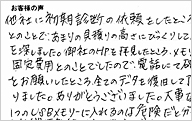 お客様の声
他社に初期診断の依頼をしたところ
とのことで、あまりの見積りの高さにびっくりして、
を探しました。御社のHPを拝見したところ、メモリ
固定費用とのことでしたので、電話にて確
をお願いしたところ、全てのデータを復旧して下
りました。ありがとうございました。大事な
1つのUSBメモリーに入れるのは危険だと分